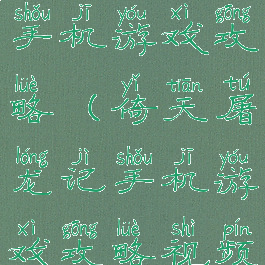 shǒu jī yóu xì gōng
手机游戏攻
lüè yǐ tiān tú
略(倚天屠
lóng jì shǒu jī yóu
龙记手机游
xì gōng lüè shì pín
戏攻略视频